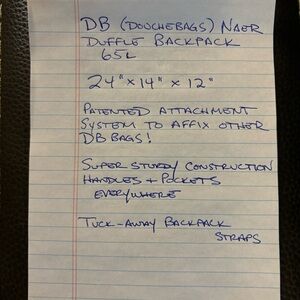 DB (DOUCHEBAGS) NAER
DUFFLE BACKPACK
65L
24" x 14" x 12"
PATENTED ATTACHMENT
SYSTEM TO AFFIX OTHER
DB BAGS!
SUPER STURDY CONSTRUCTION
HANDLES + POCKETS
EVERYWHERE
TUCK-AWAY BACKPACK
STRAPS